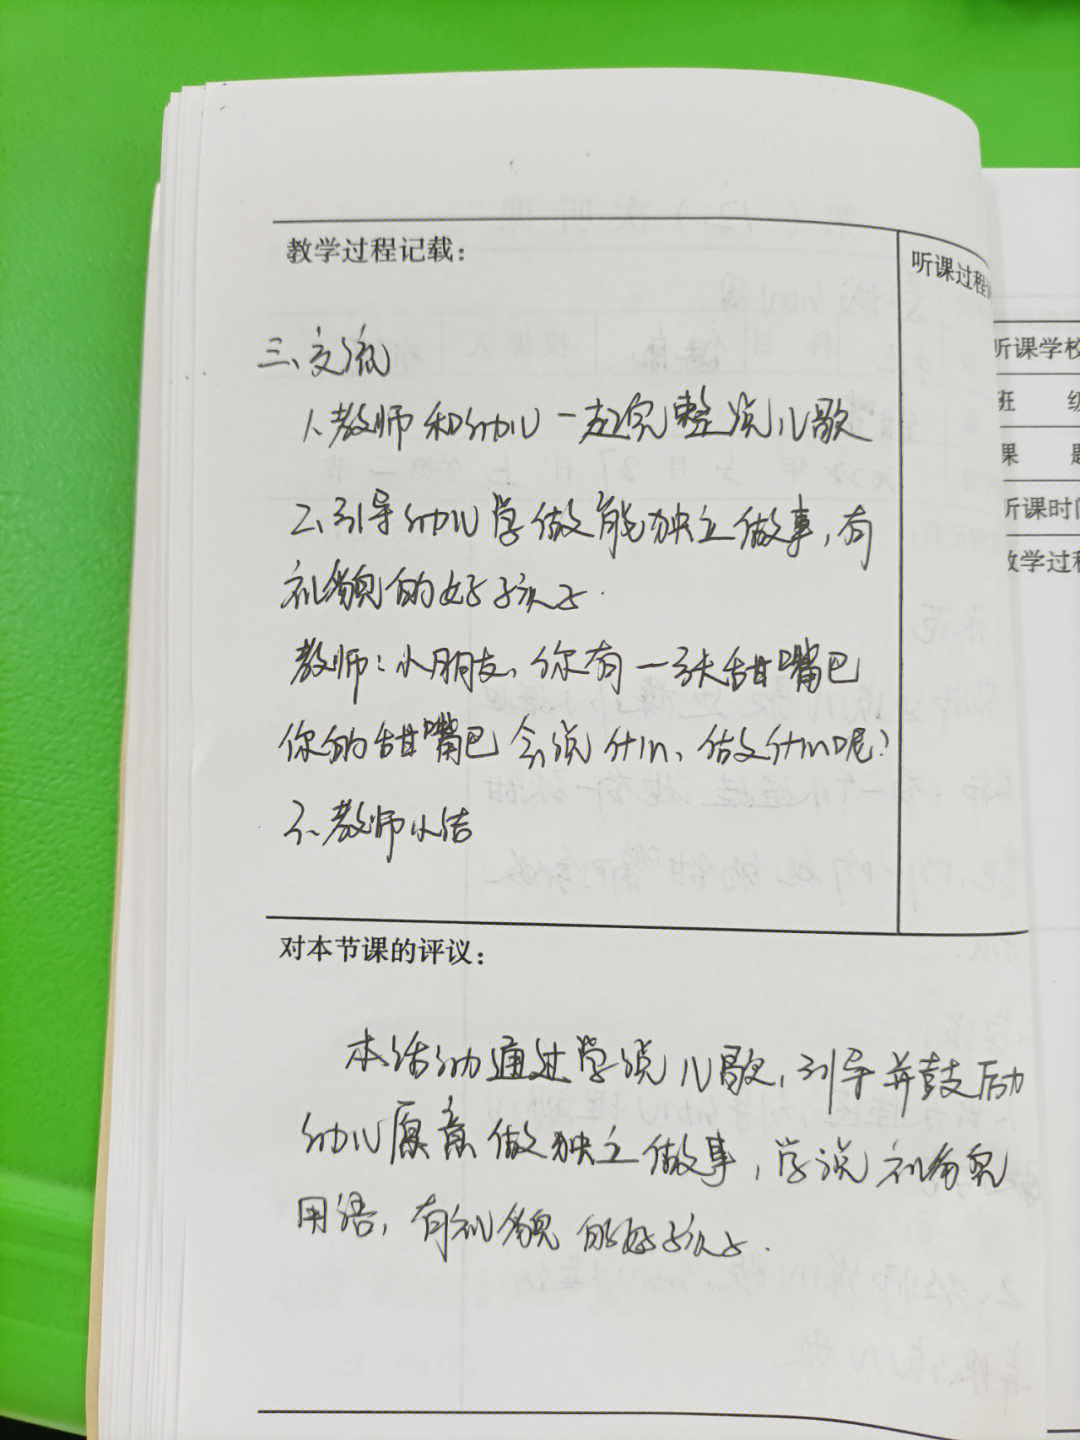 教学过程记载：
听课过程
三、交流
1、教师和幼儿一起完整说儿歌
2、引导幼儿学做能独立做事，有
礼貌的好孩子.
教师：小朋友、你有一张甜嘴巴
你的甜嘴巴会说什么、做什么呢？
3、教师小结
对本节课的评议：
本活动通过学说儿歌，引导并鼓励
幼儿愿意做独立做事，学说礼貌
用语，有礼貌的好孩子.
听课学校
班 级
课 题
听课时间
教学过程